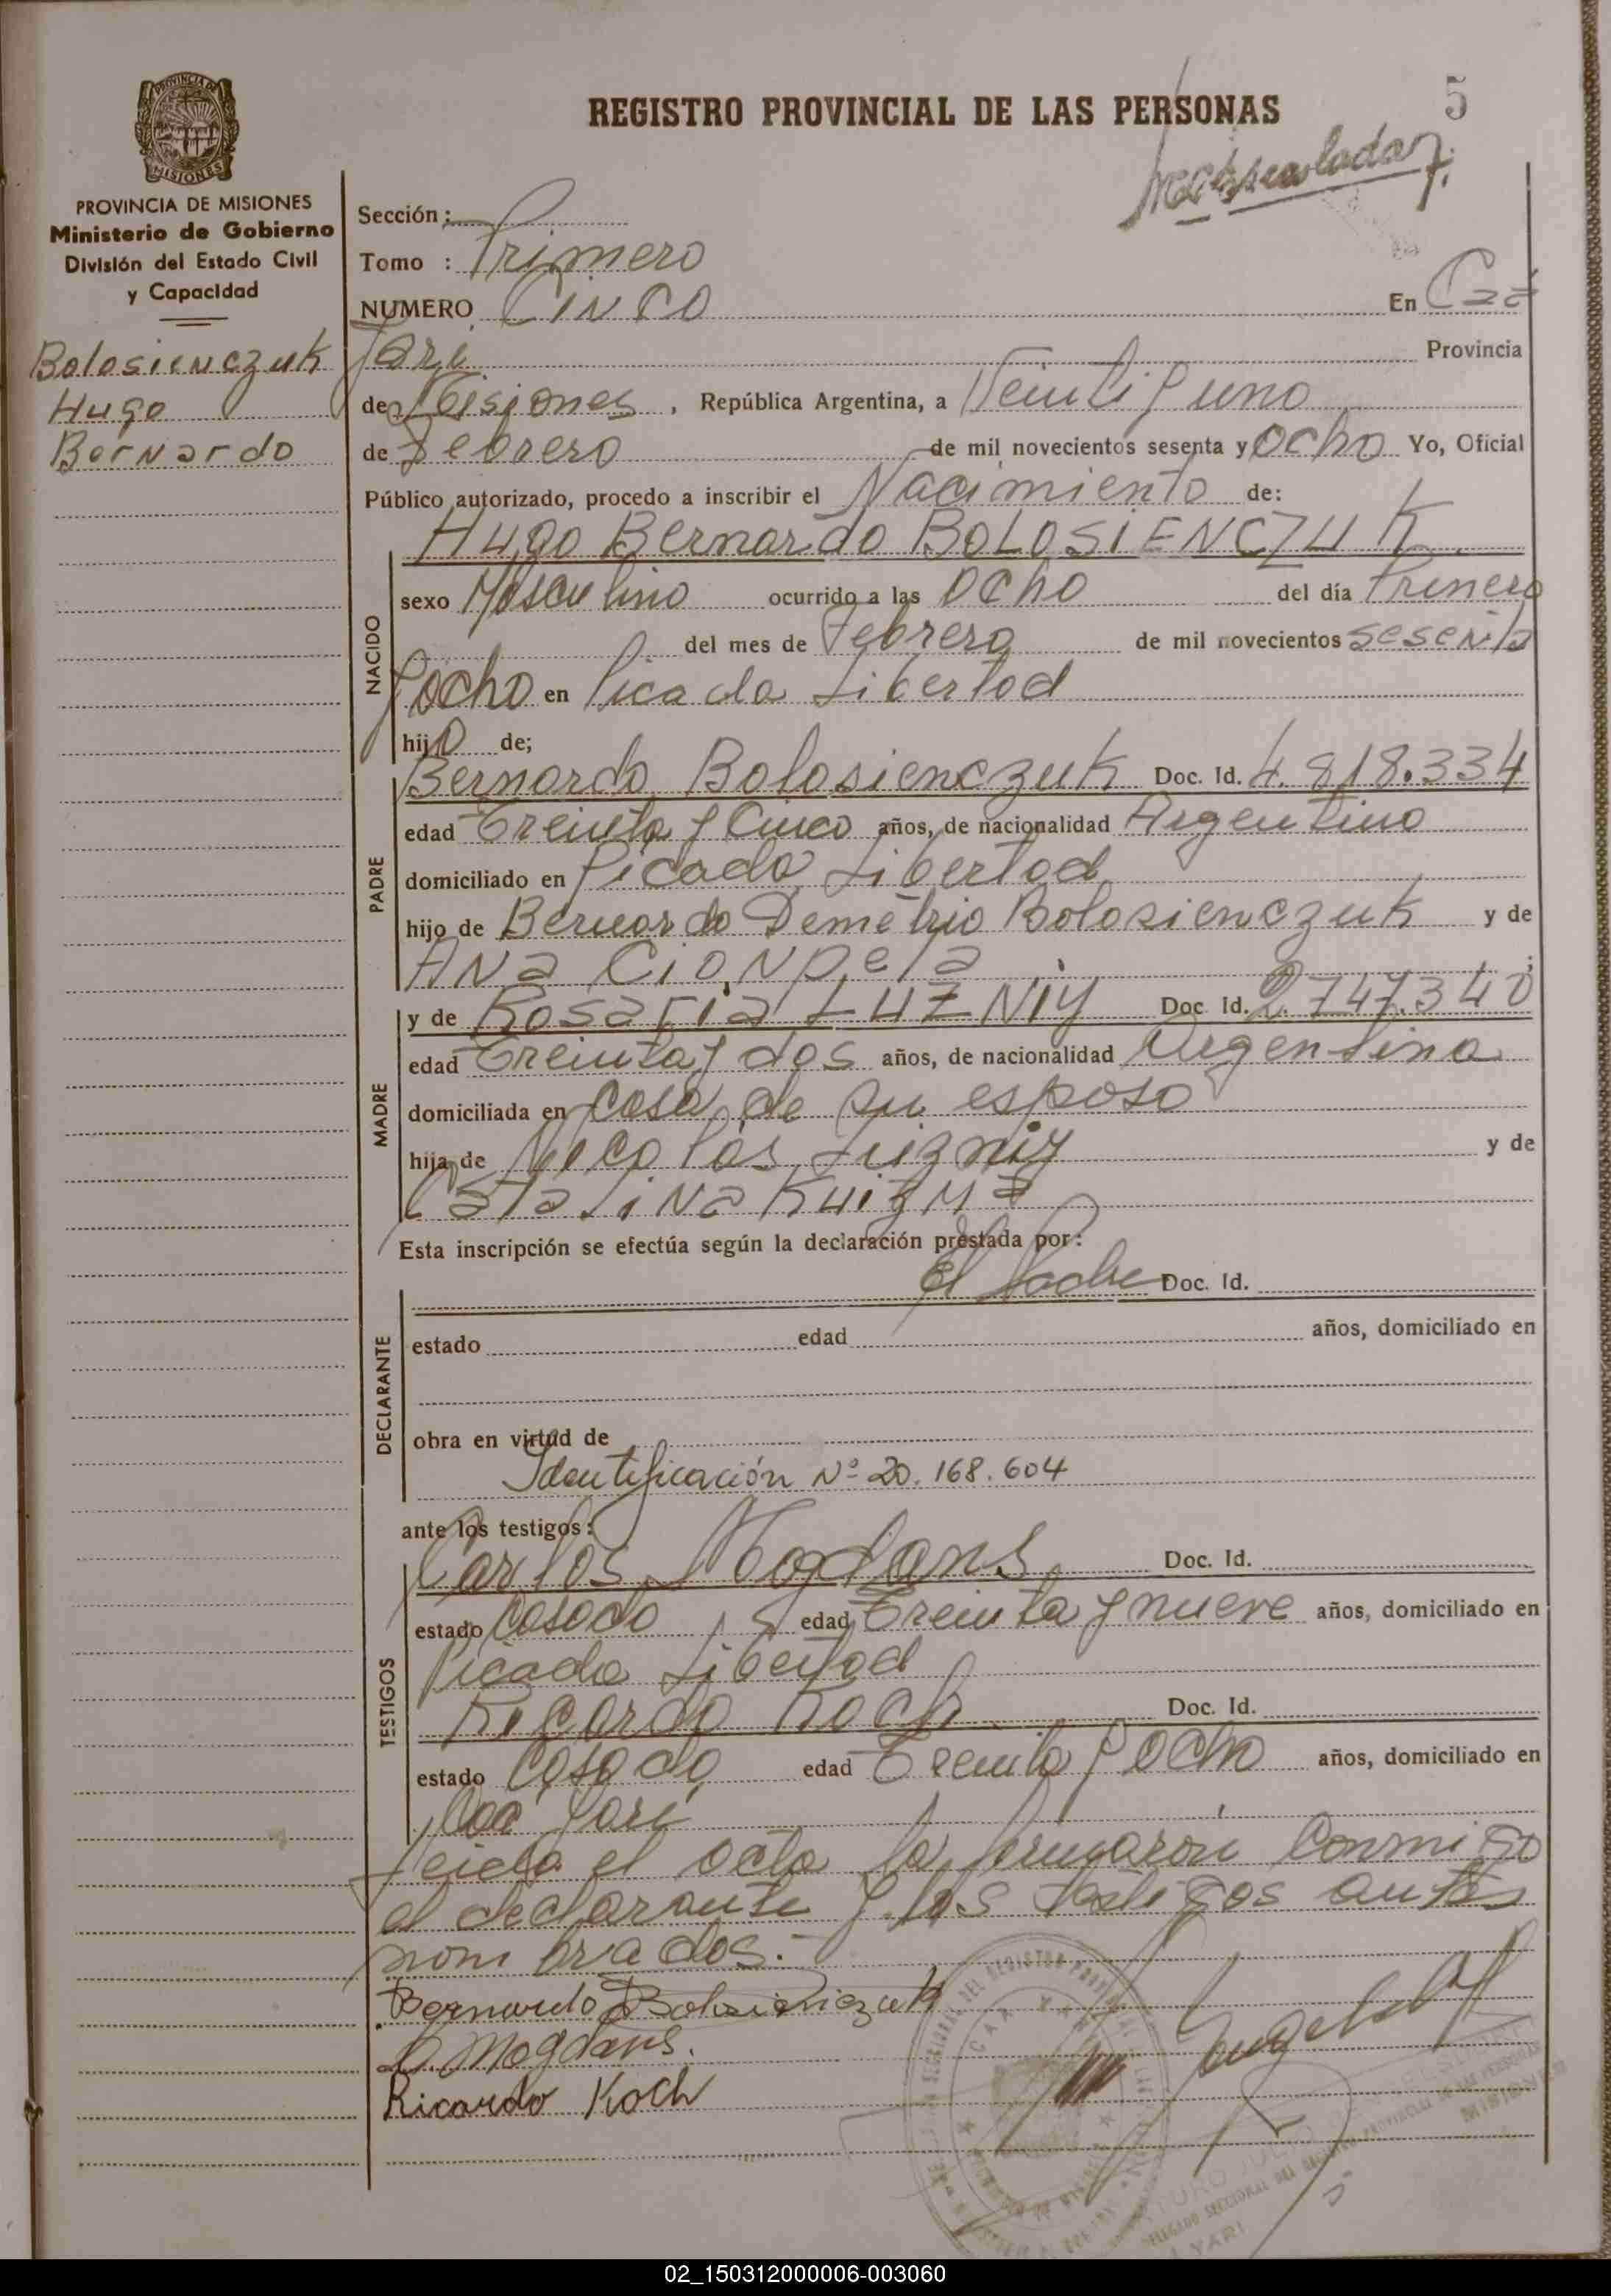 REGISTRO PROVINCIAL DE LAS PERSONAS
5
PROVINCIA DE MISIONES
Ministerio de Gobierno
División del Estado Civil
y Capacidad
Bolosienczuk
Hugo
Bernardo
Sección :
Tomo : Primero
NUMERO CINCO En Caá
Yarí Provincia
de Misiones, República Argentina, a Veinti y uno
de Febrero de mil novecientos sesenta y ocho Yo, Oficial
Público autorizado, procedo a inscribir el Nacimiento de:
Hugo Bernardo BOLOSIENCZUK
NACIDO
sexo Masculino ocurrido a las ocho del día Primero
del mes de Febrero de mil novecientos sesenta
y ocho en Picada Libertad
hijo de;
PADRE
Bernardo Bolosienczuk Doc. Id. 4.818.334
edad Treinta y Cinco años, de nacionalidad Argentino
domiciliado en Picada Libertad
hijo de Bernardo Demetrio Bolosienczuk y de
Ana Cionpela;
MADRE
y de Rosaria LUZNIY Doc. Id. 2.747.340
edad Treinta y dos años, de nacionalidad Argentina
domiciliada en Casa de su esposo
hija de Nicolas Luzniy y de
Catalina Kuizma
Esta inscripción se efectúa según la declaración prestada por:
DECLARANTE
El Padre Doc. Id.
estado edad años, domiciliado en
obra en virtud de
Identificación Nº 20.168.604
ante los testigos:
TESTIGOS
Carlos Mogdans Doc. Id.
estado Casado edad Treinta y nueve años, domiciliado en
Picada Libertad
Ricardo Koch Doc. Id.
estado Casado edad Treinta y ocho años, domiciliado en
Caá Yarí
Leida el acta la firmaron Conmigo
el declarante y los testigos antes
nombrados.-
Bernardo Bolosienczuk
C. Mogdans.
Ricardo Koch
02_150312000006-003060